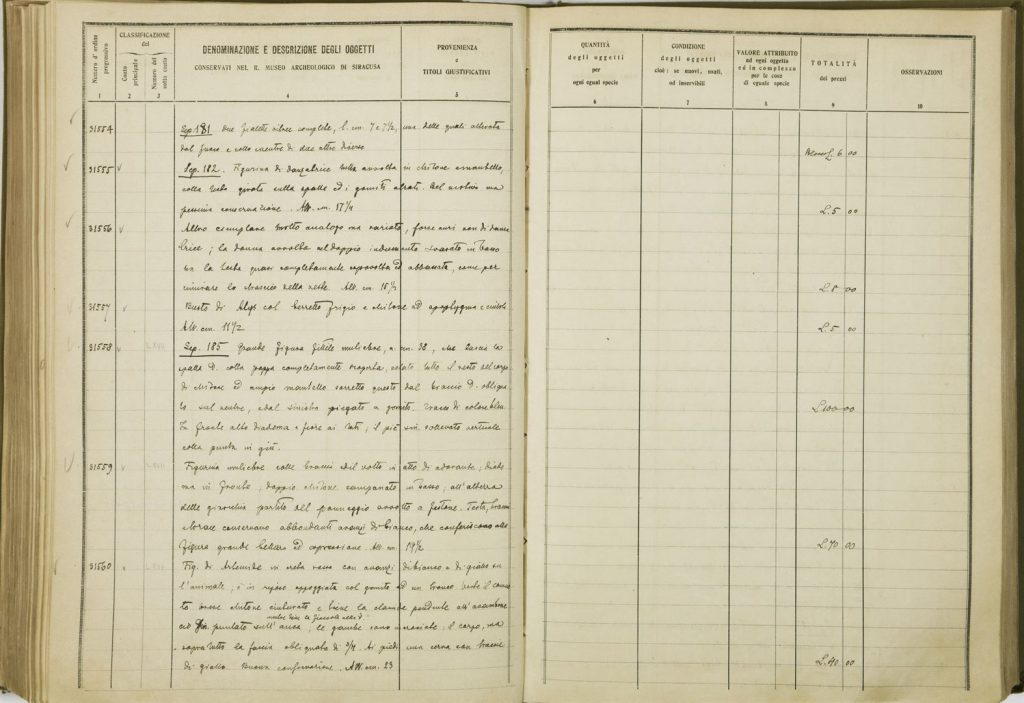 Numero d'ordine progressivo
CLASSIFICAZIONE
del
Conto principale
Numero del sotto conto
DENOMINAZIONE E DESCRIZIONE DEGLI OGGETTI
CONSERVATI NEL R. MUSEO ARCHEOLOGICO DI SIRACUSA
PROVENIENZA
e
TITOLI GIUSTIFICATIVI
1 2 3 4 5
31554 Sep. 181 due fialette vitree complete, l. cm. 7 e 7½, una delle quali alterata
dal fuoco e collo mentre di due altre diverso
31555 Sep. 182. Figurina di danzatrice tutta avvolta in chitone e mantello,
colla testa girata sulla spalla ed i gomiti alzati. Bel motivo ma
pessima conservazione. Alt. cm. 17½
31556 Altro esemplare molto analogo ma variato, forse anzi non di danza
trice; la donna avvolta nel doppio indumento svasato in basso
la testa quasi completamente ed abbassata, come per
rimirare lo strascico della veste. Alt. cm. 15½
31557 Busto di Atys col berretto frigio e chitone ad apoptygma e
Alt. cm. 11½
31558 Sep. 185 Grande figura fittile muliebre, a. cm. 32, che lascia la
spalla d. colla poppa completamente scoperta, celato tutto il resto del corpo
di chitone ed ampio mantello sorretto questo dal braccio d. obliqua
to sul ventre, e dal sinistro piegato a gomito. Tracce di colore bleu
In fronte alto diadoma e fiore ai lati; il piè sin. sollevato verticale
colla punta in giù.
31559 Figurina muliebre colle braccia e il volto in atto di adorante; diade
ma in fronte, doppio chitone campanato in basso; all'altezza
delle ginocchia partito del panneggio avvolto a festone. Testa, braccia
e torace conservano abbondanti avanzi di bianco, che conferiscono alla
figura grande bellezza ed espressione. Alt. cm. 19½
31560 Fig. di Artemide in creta rossa con avanzi di bianco e di giallo su
l'animale; è in riposo appoggiata col gomito ad un tronco veste il
chitone cinturato e tiene la clamide pendente all'
mentre tiene la fiaccola nella d.
puntato sull'anca; le gambe sono incrociate. Il corpo, ma
sopratutto la faccia obliquata di ¾. Ai piedi una cerva con tracce
di giallo. Buona conservazione. Alt. cm. 23
QUANTITÀ
degli oggetti
per
ogni egual specie
CONDIZIONE
degli oggetti
cioè: se nuovi, usati,
od inservibili
VALORE ATTRIBUITO
ad ogni oggetto
ed in complesso
per le cose
di eguale specie
TOTALITÀ
dei prezzi
OSSERVAZIONI
6 7 8 9 10
L. 6 00
L. 5 00
L. 8 00
L. 5 00
L. 100 00
L. 70 00
L. 40 00